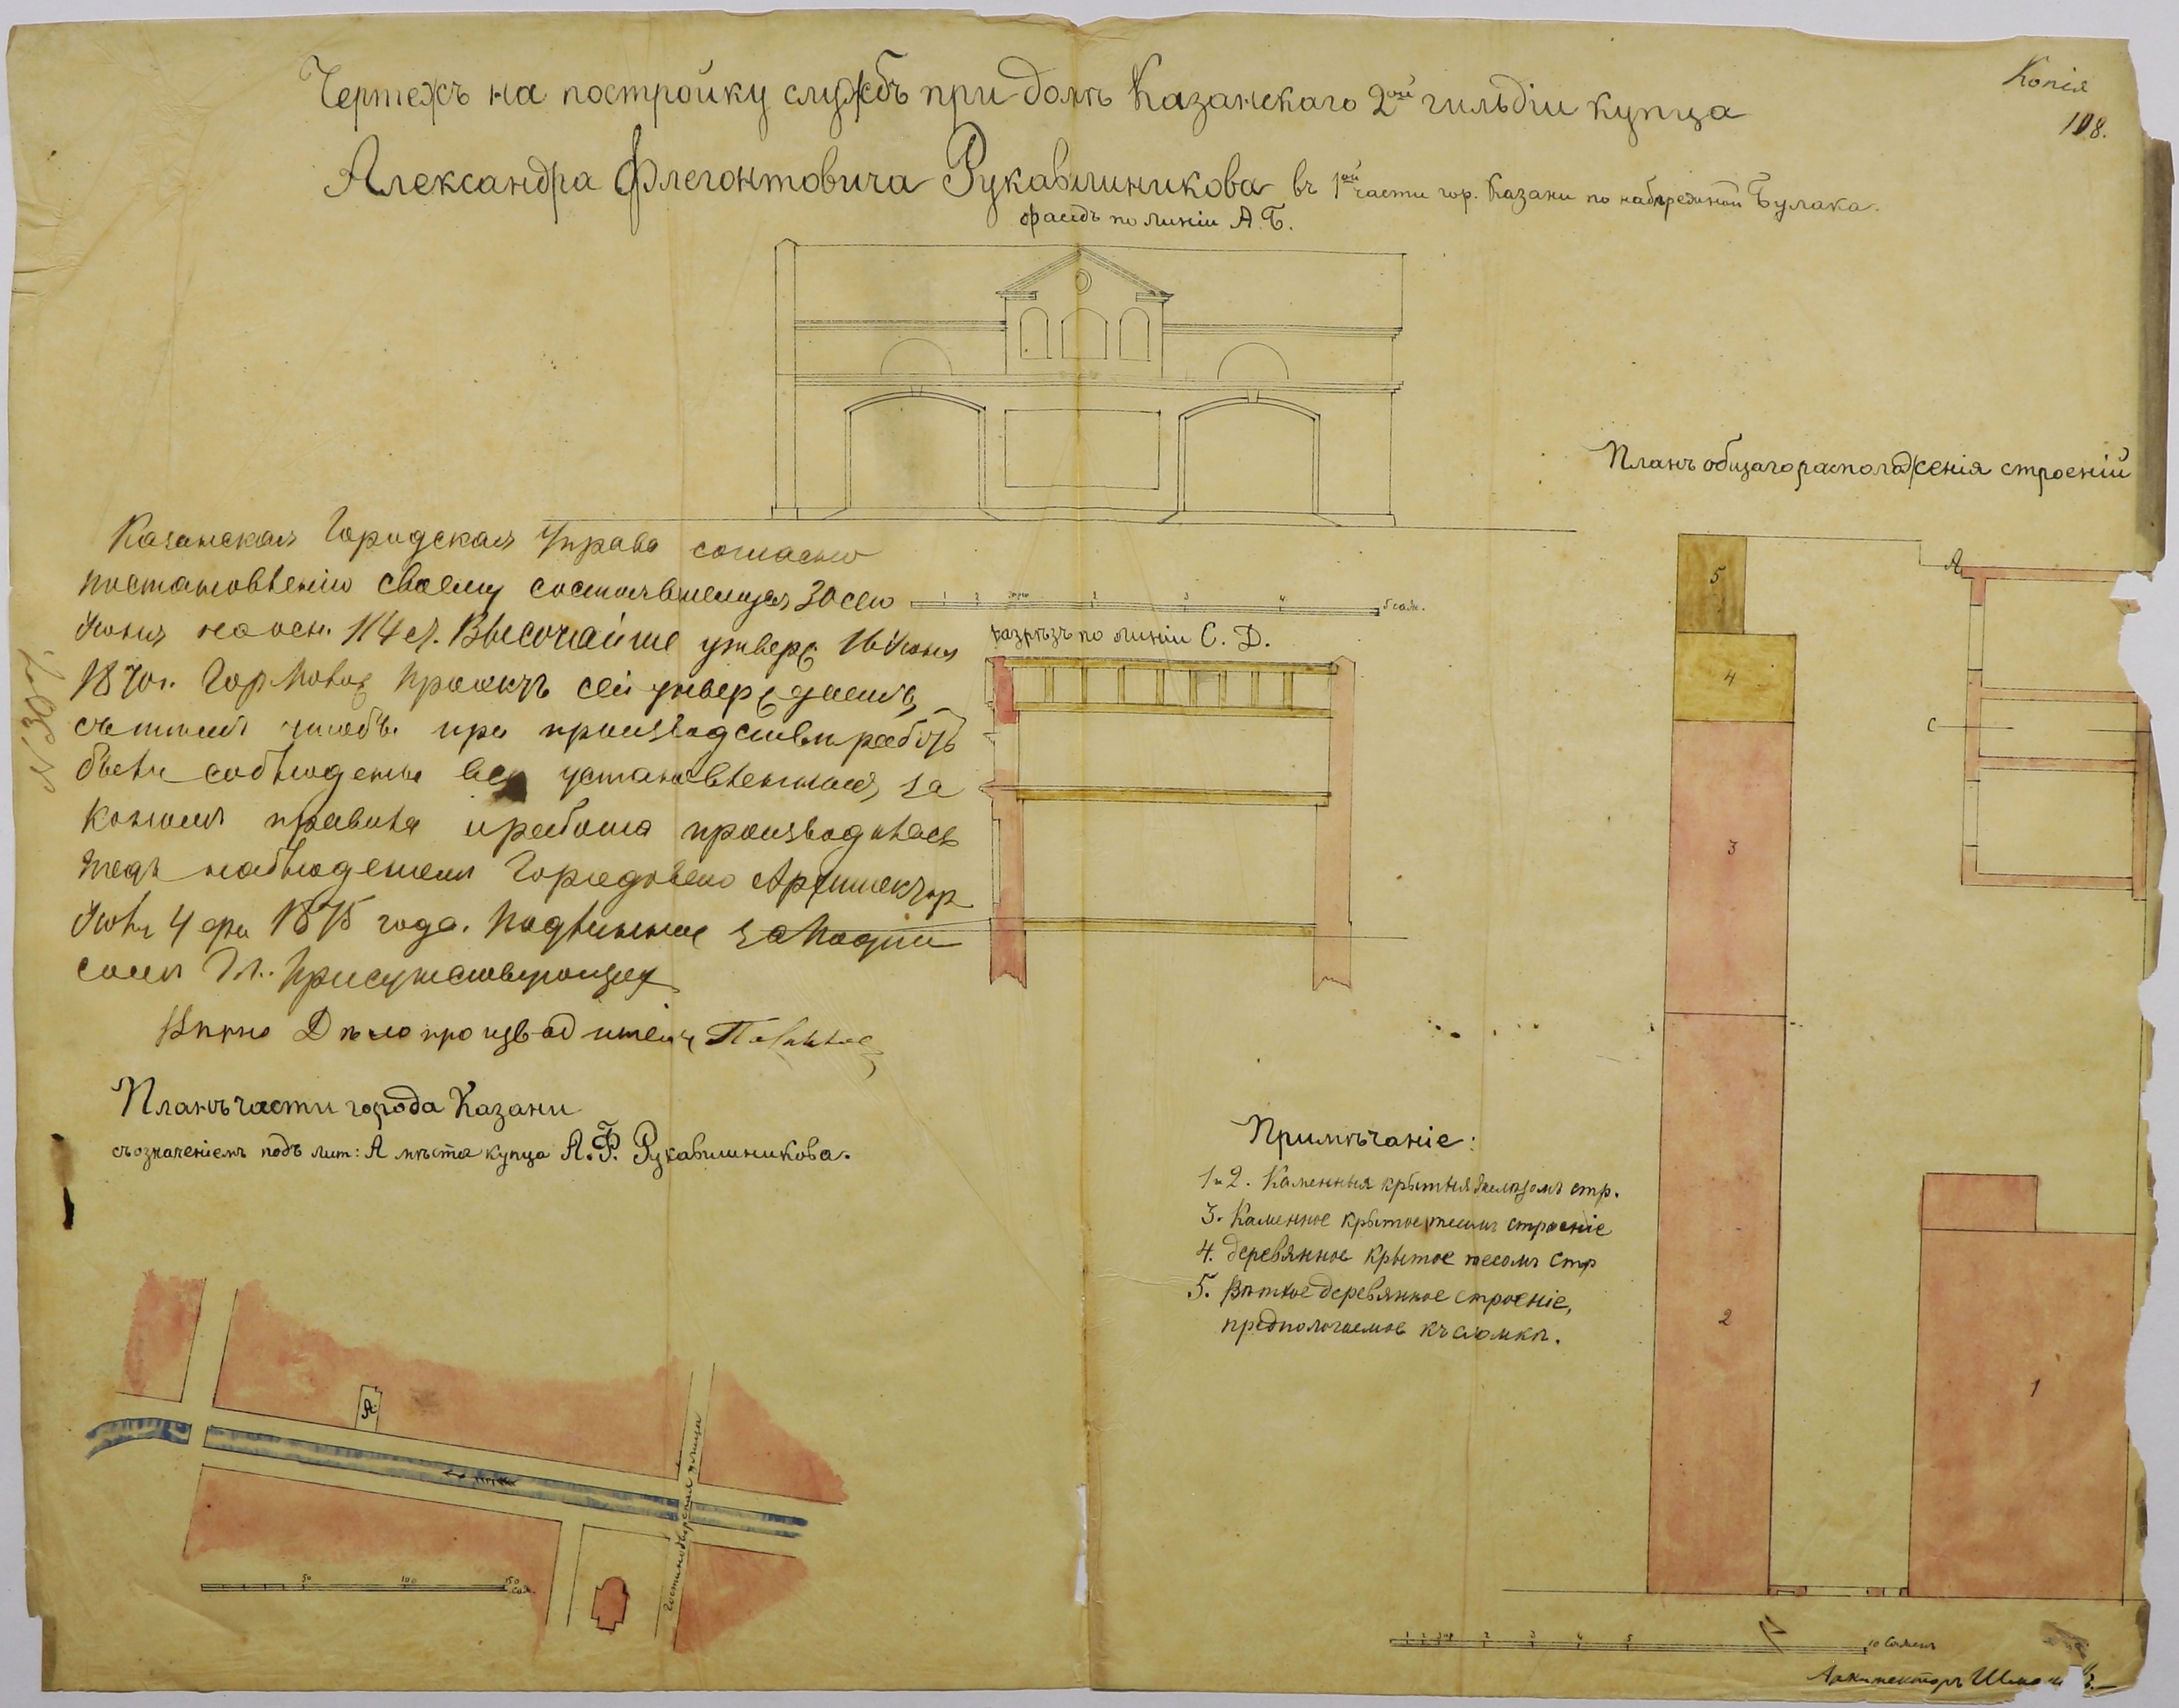 Копія
108.
Чертежъ на постройку службъ при домѣ Казанскаго 2ой гильдіи купца
Александра Флегонтовича Рукавишникова въ 1ой части гор. Казани по набережной Булака.
фасадъ по линіи А.Б.
Планъ общаго расположенія строеній
Казанская Городская Управа согласно
постановленію своему состоявшемуся 30 сего
Іюня на осн. 114 ст. Высочайше утверж 16 Іюня
1870 г. Гор Полож проэктъ сей утверждаетъ,
съ тѣмъ чтобы при производствѣ работъ
были соблюдены всѣ установленныя за
кономъ правила и работа производилась
подъ наблюденіемъ Городоваго Архитектора
Іюля 4 дня 1875 года. Подлинное за подпи
сомъ Гг. Присутствующихъ
Вѣрно Дѣлопроизводитель
1 2 3 4 5 саж.
разрѣзъ по линіи С. Д.
А
С
5
4
3
2
1
Планъ части города Казани
съ означеніемъ подъ лит: А мѣста купца А.Ф. Рукавишникова.
А
Гостинодворская улица
50 100 150 саж.
Примѣчаніе:
1 и 2. Каменныя крытыя желѣзомъ стр.
3. Каменное крытое тесомъ строеніе
4. деревянное крытое тесомъ стр
5. Ветхое деревянное строеніе,
предпологаемое къ сломкѣ.
1 2 3 4 5 10 Сажень
Архитекторъ